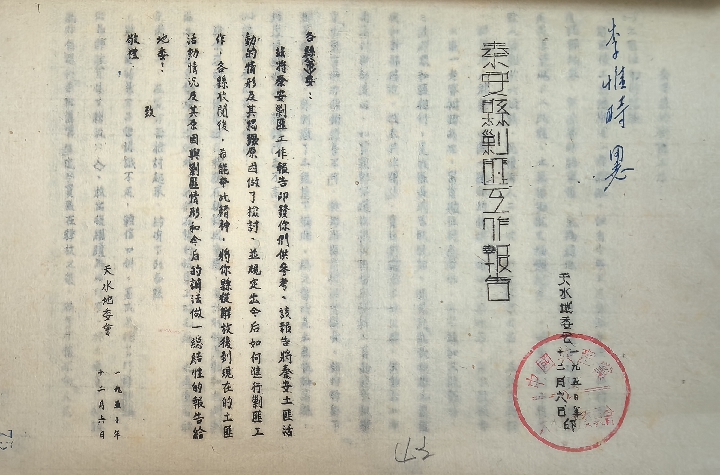 李惟時
秦安縣剿匪工作報告
天水地委会
一九五〇年印
十二月六日
中國共產黨
各縣委：
茲將秦安剿匪工作報告印發你們供參考、該報告將秦安土匪活
動的情形及其猖獗原因做了檢討、並規定出今后如何進行剿匪工
作，各縣收閱後，希能本此精神，將你縣從解放後到現在的土匪
活動情况及其原因與剿匪情形和今后的辦法做一總結性的報告給
地委：
致
敬禮
天水地委會
一九五〇年
十二月六日